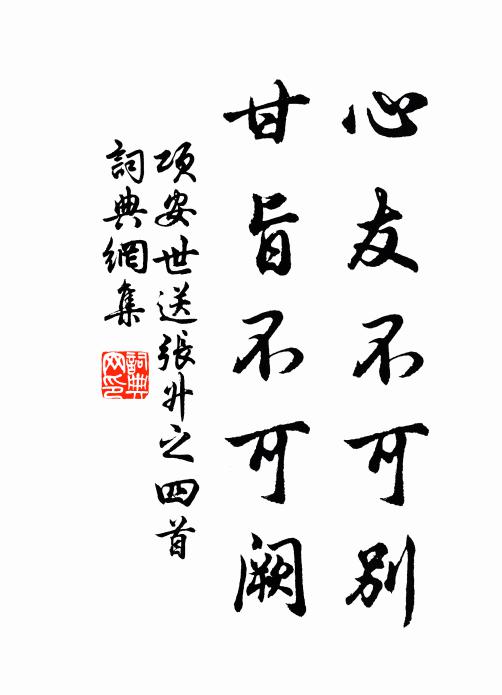 心友不可別
甘旨不可闕
項安世送張升之四首
詞典網集
詞典
网印